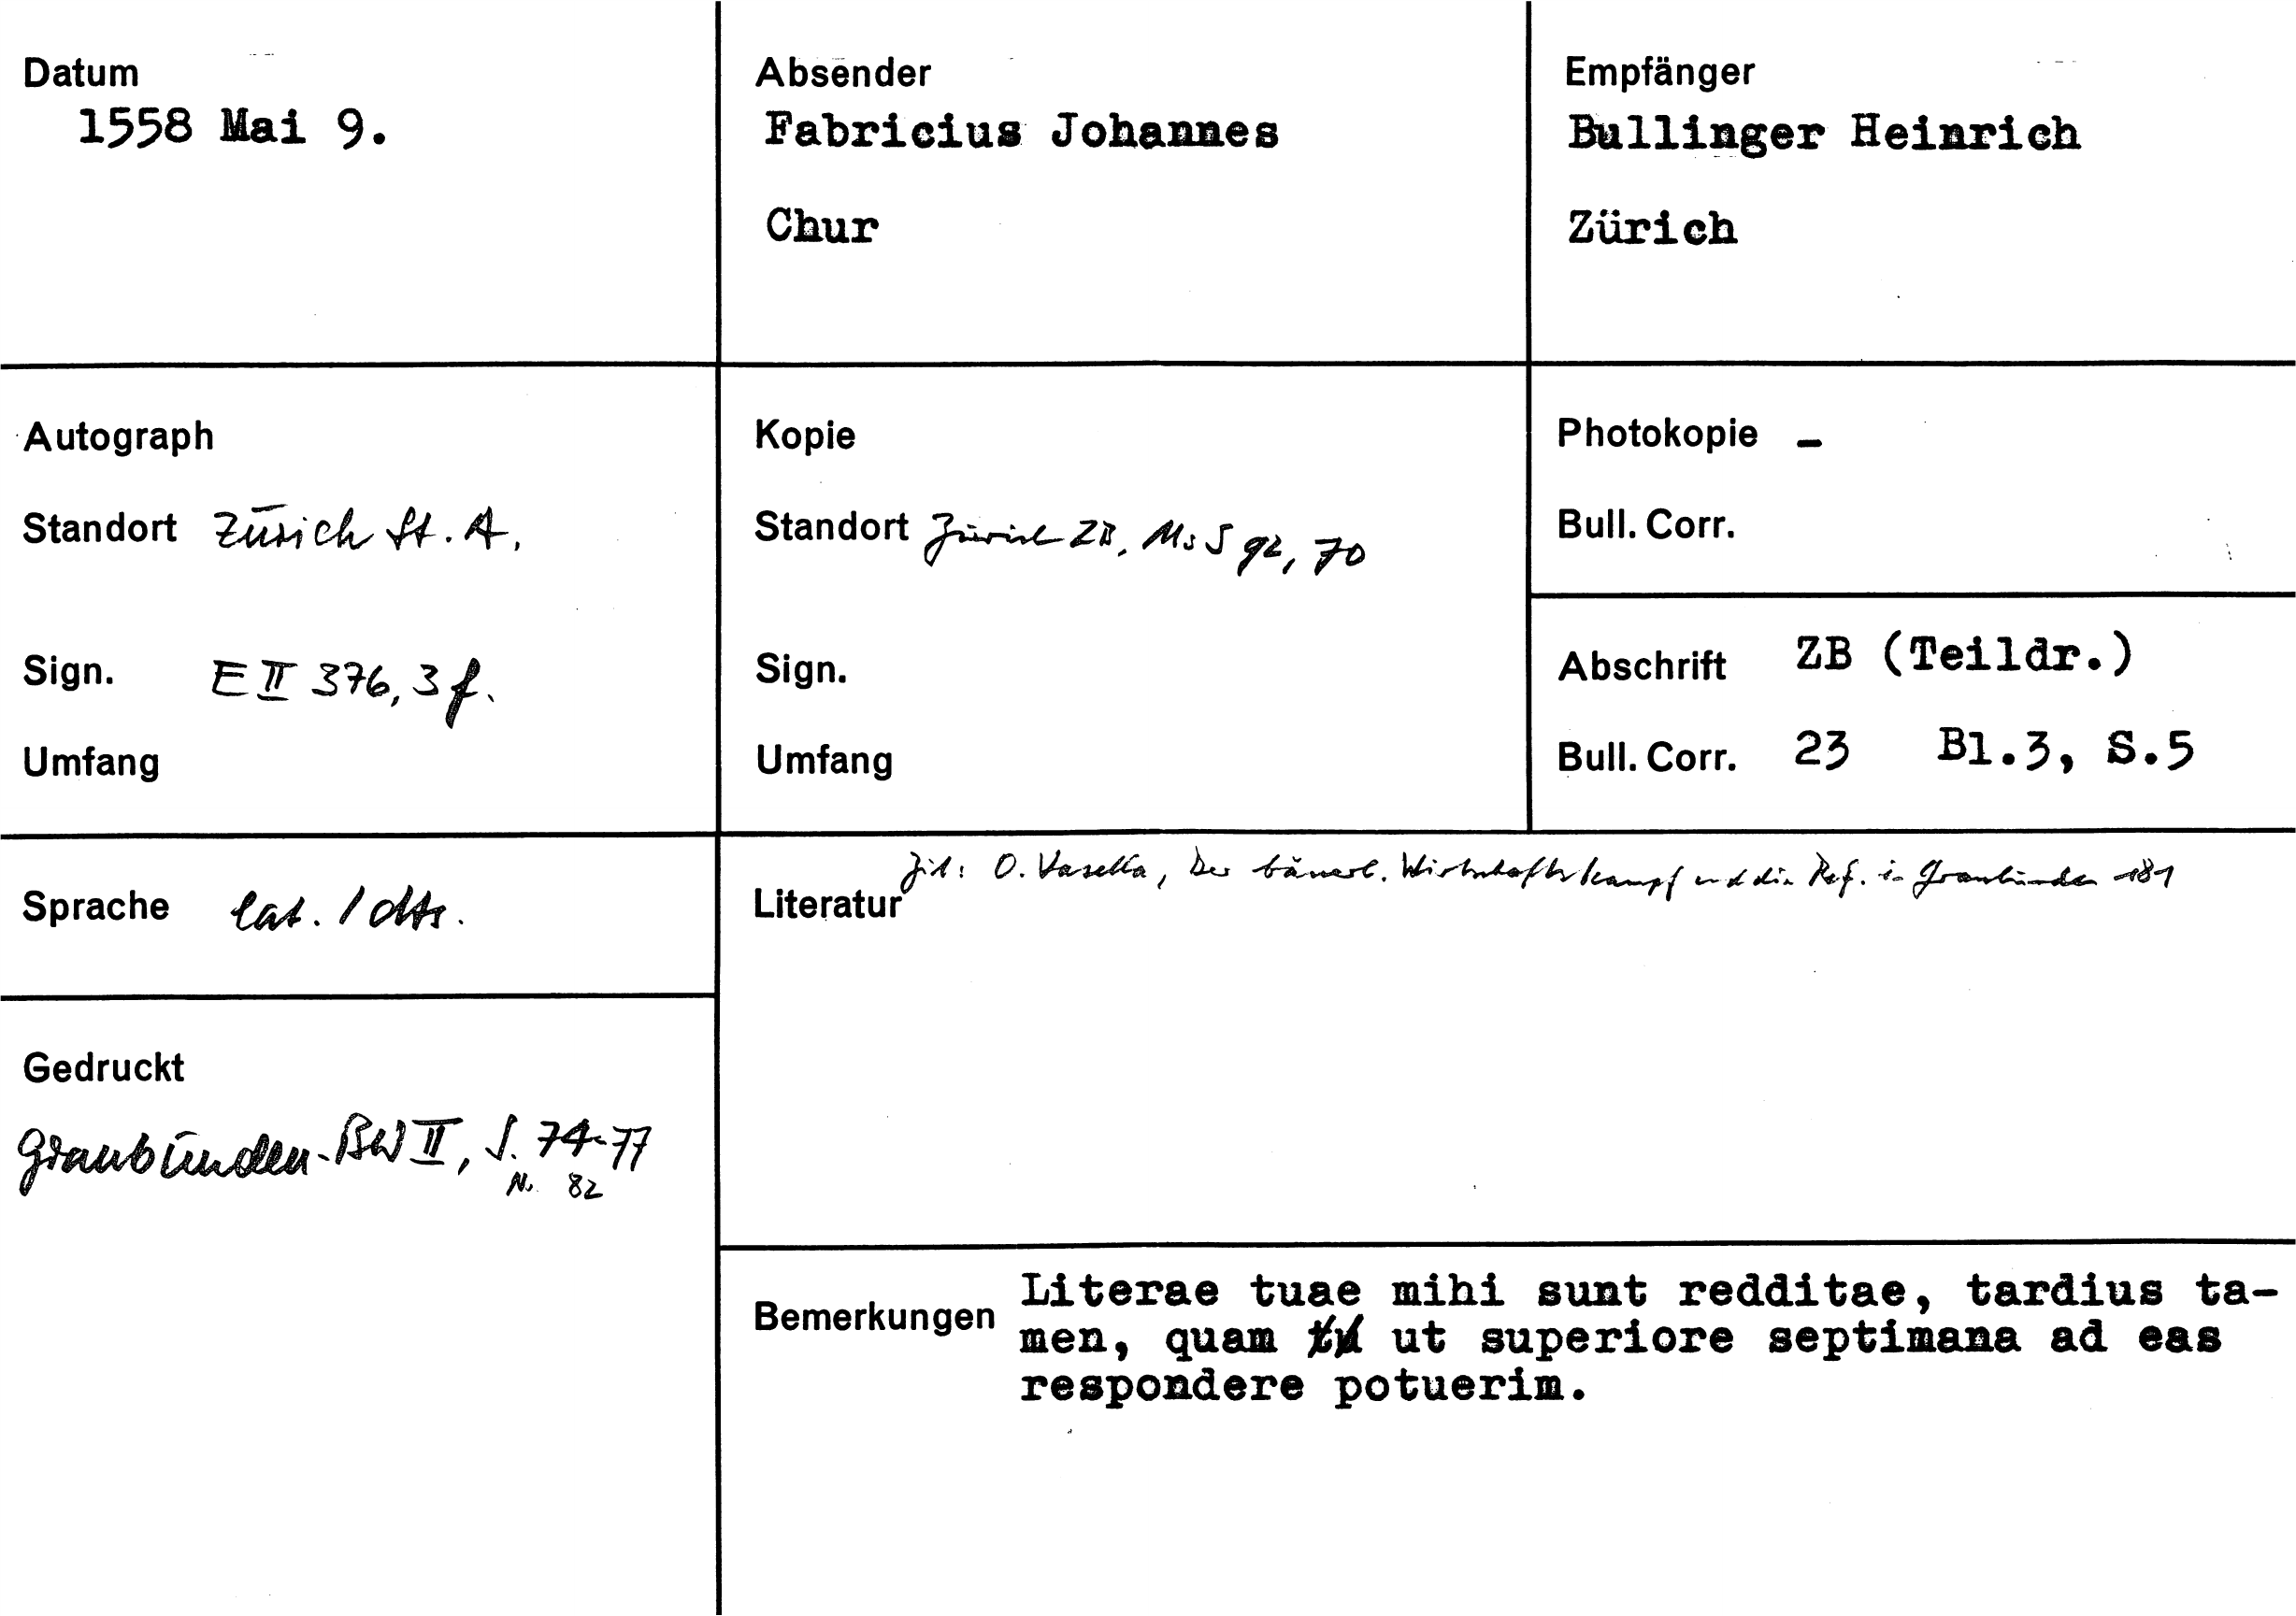 Datum
1558 Mai 9.
Absender
Fabricius Johannes
Chur
Empfänger
Bullinger Heinrich
Zürich
Autograph
Standort Zürich St. A.
Sign. E II 376, 3 f.
Umfang
Kopie
Standort Zürich ZB, Ms S 92, 70
Sign.
Umfang
Photokopie –
Bull. Corr.
Abschrift ZB (Teildr.)
Bull. Corr. 23 Bl.3, S.5
Sprache lat. / dts.
Gedruckt
Graubünden-BW II, S. 74-77
Nr. 82
Zit: O. Vasella, Der bäuerl. Wirtschaftskampf und die Ref. in Graubünden 181
Literatur
Bemerkungen
Literae tuae mihi sunt redditae, tardius ta-
men, quam ut superiore septimana ad eas
respondere potuerim.